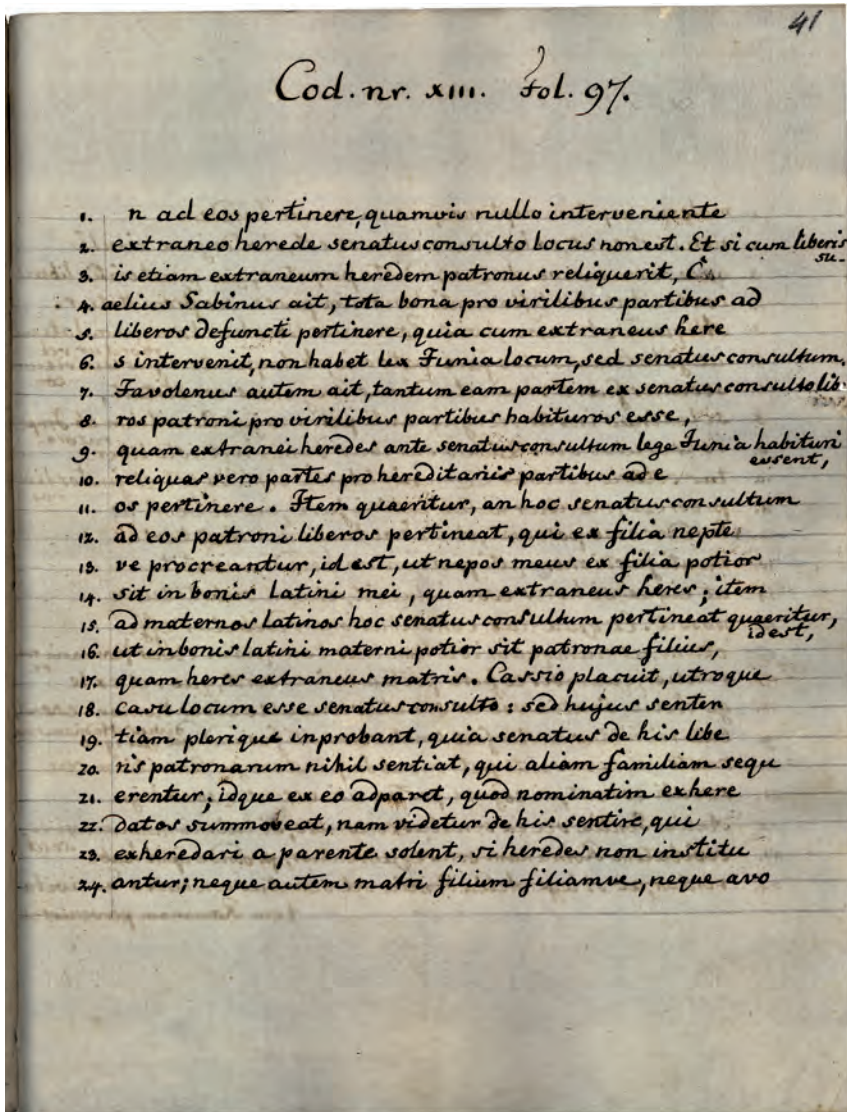 41
Cod. nr. XIII. Fol. 97.
1. n ad eos pertinere, quamvis nullo interveniente
2. extraneo herede senatusconsulto locus non est. Et si cum liberis su-
3. is etiam extraneum heredem patronus reliquerit, C
4. aelius Sabinus ait, tota bona pro virilibus partibus ad
5. liberos defuncti pertinere, quia cum extraneus here
6. s intervenit, non habet lex Junia locum, sed senatusconsultum.
7. Javolenus autem ait, tantum eam partem ex senatusconsulto lib
8. ros patroni pro virilibus partibus habituros esse,
9. quam extranei heredes ante senatusconsultum lege Junia habituri essent,
10. reliquas vero partes pro hereditariis partibus ad e
11. os pertinere. Item quaeritur, an hoc senatusconsultum
12. ad eos patroni liberos pertineat, qui ex filia nepte
13. ve procreantur, id est, ut nepos meus ex filia potior
14. sit in bonis Latini mei, quam extraneus heres; item
15. ad maternos latinos hoc senatusconsultum pertineat quaeritur, id est,
16. ut in bonis latini materni potior sit patronae filius,
17. quam heres extraneus matris. Cassio placuit, utroque
18. casu locum esse senatusconsulto: sed hujus senten
19. tiam plerique inprobant, quia senatus de his libe
20. ris patronarum nihil sentiat, qui aliam familiam sequ
21. erentur; idque ex eo adparet, quod nominatim exhere
22. datos summoveat, nam videtur de his sentire, qui
23. exheredari a parente solent, si heredes non institu
24. antur; neque autem matri filium filiamve, neque avo